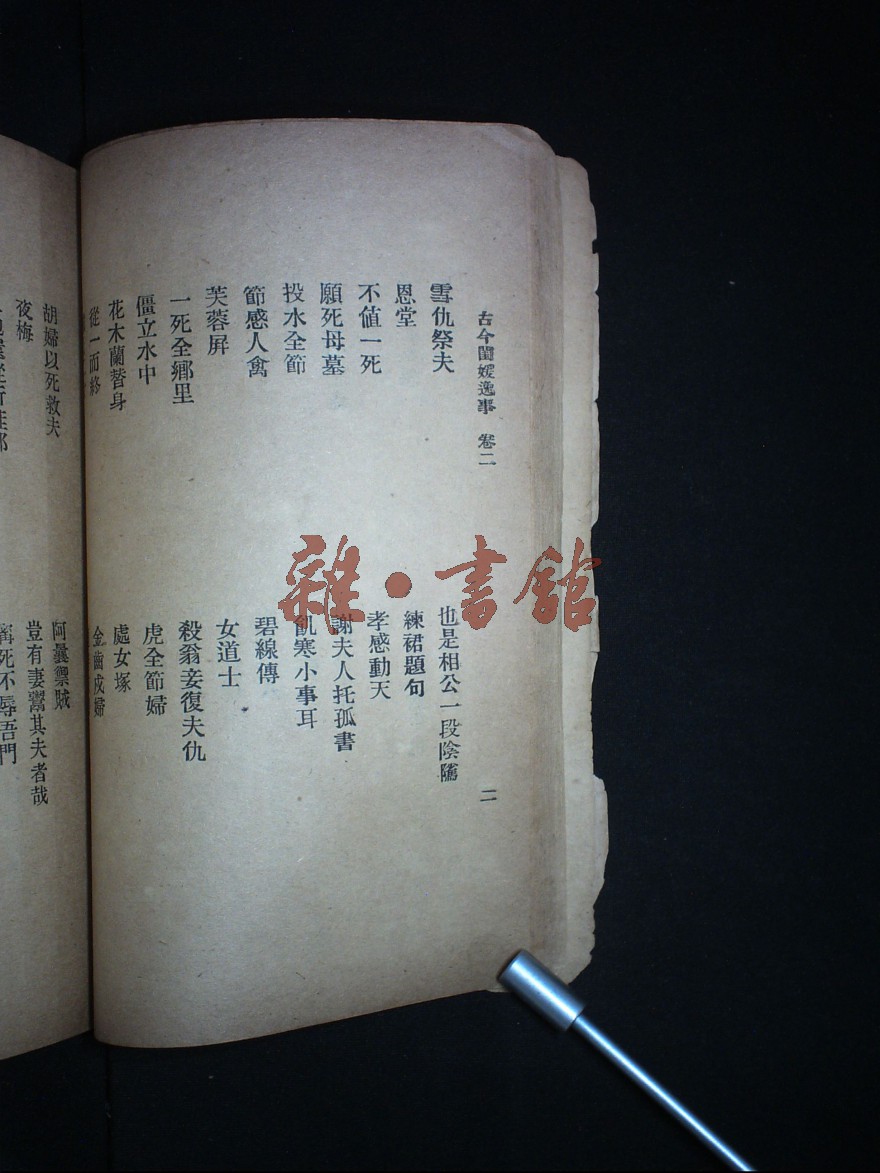 古今閨媛逸事 卷二
二
雪仇祭夫
也是相公一段陰隲
恩堂
練裙題句
不值一死
孝感動天
願死母墓
謝夫人托孤書
投水全節
飢寒小事耳
節感人禽
碧線傳
芙蓉屏
女道士
一死全鄉里
殺翁妾復夫仇
僵立水中
虎全節婦
花木蘭替身
處女塚
從一而終
金齒戍婦
胡婦以死救夫
阿曩禦賊
夜梅
豈有妻鬻其夫者哉
寧死不辱吾門
雜·書館